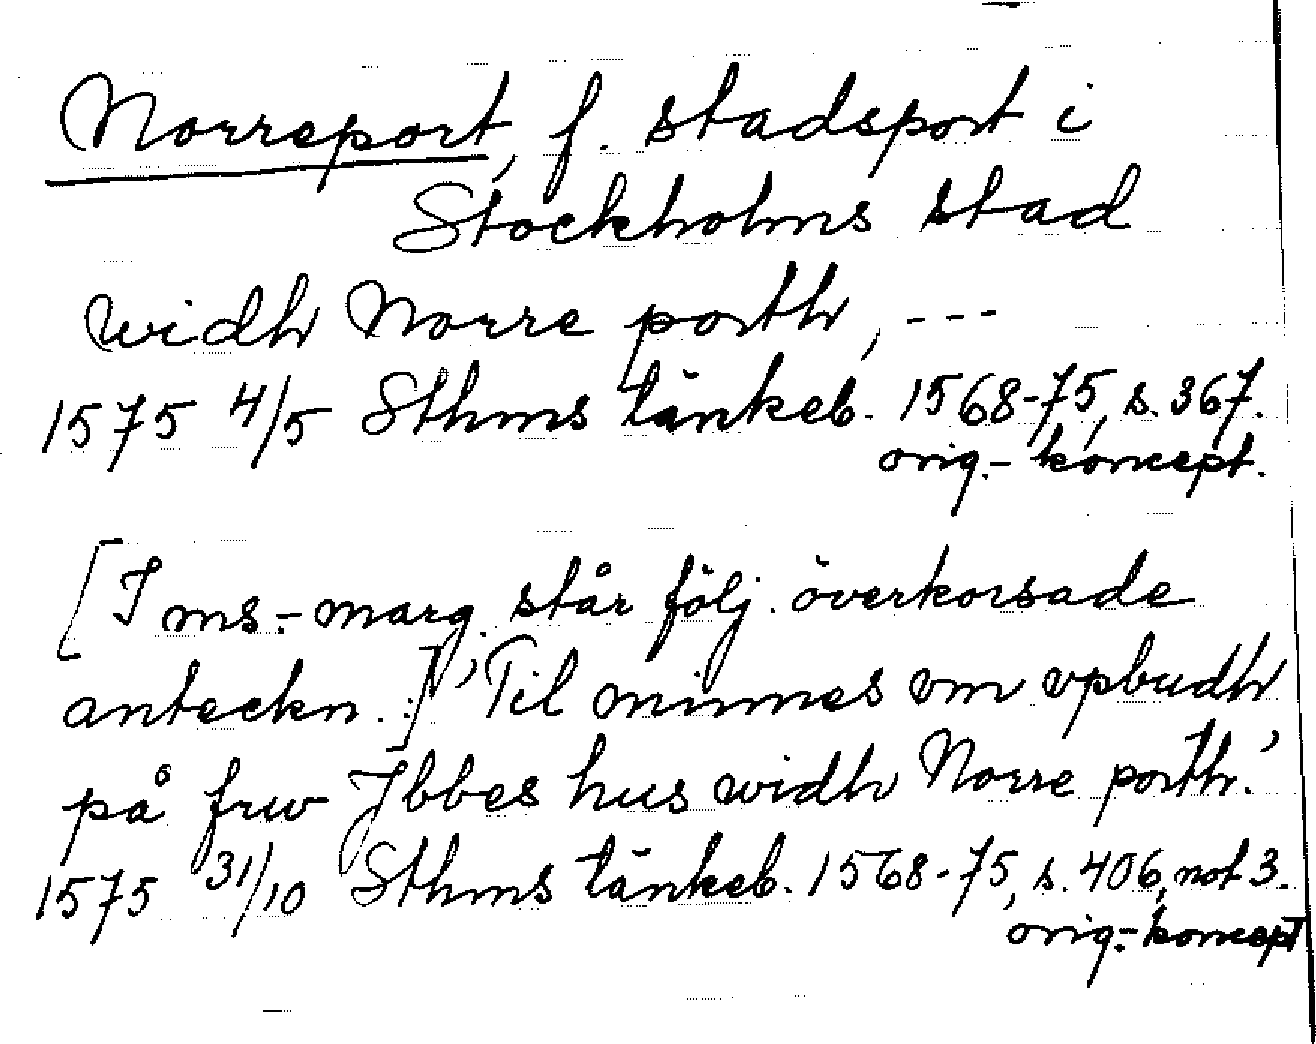 Norreport, f. stadsport i
Stockholms stad
widh Norre porth, ---
1575 4/5 Sthms tänkeb. 1568-75, s. 367.
orig.-koncept.
[I ms.-marg. står följ. överkorsade
anteckn.:] 'Til minnes om vpbudh
på frw Jbbes hus widh Norre porth.'
1575 31/10 Sthms tänkeb. 1568-75, s. 406, not 3.
orig.-koncept